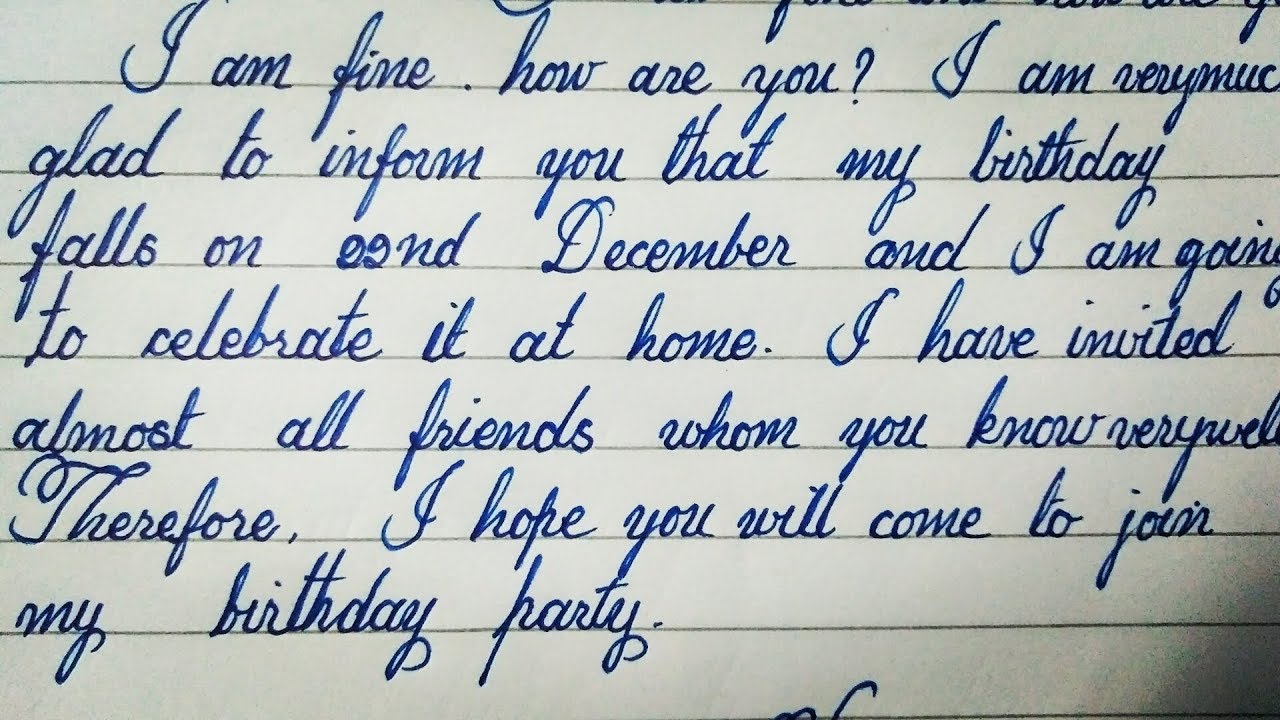 I am fine. how are you? I am verymuc
glad to inform you that my birthday
falls on 22nd December and I am going
to celebrate it at home. I have invited
almost all friends whom you know verywell
Therefore, I hope you will come to join
my birthday party.